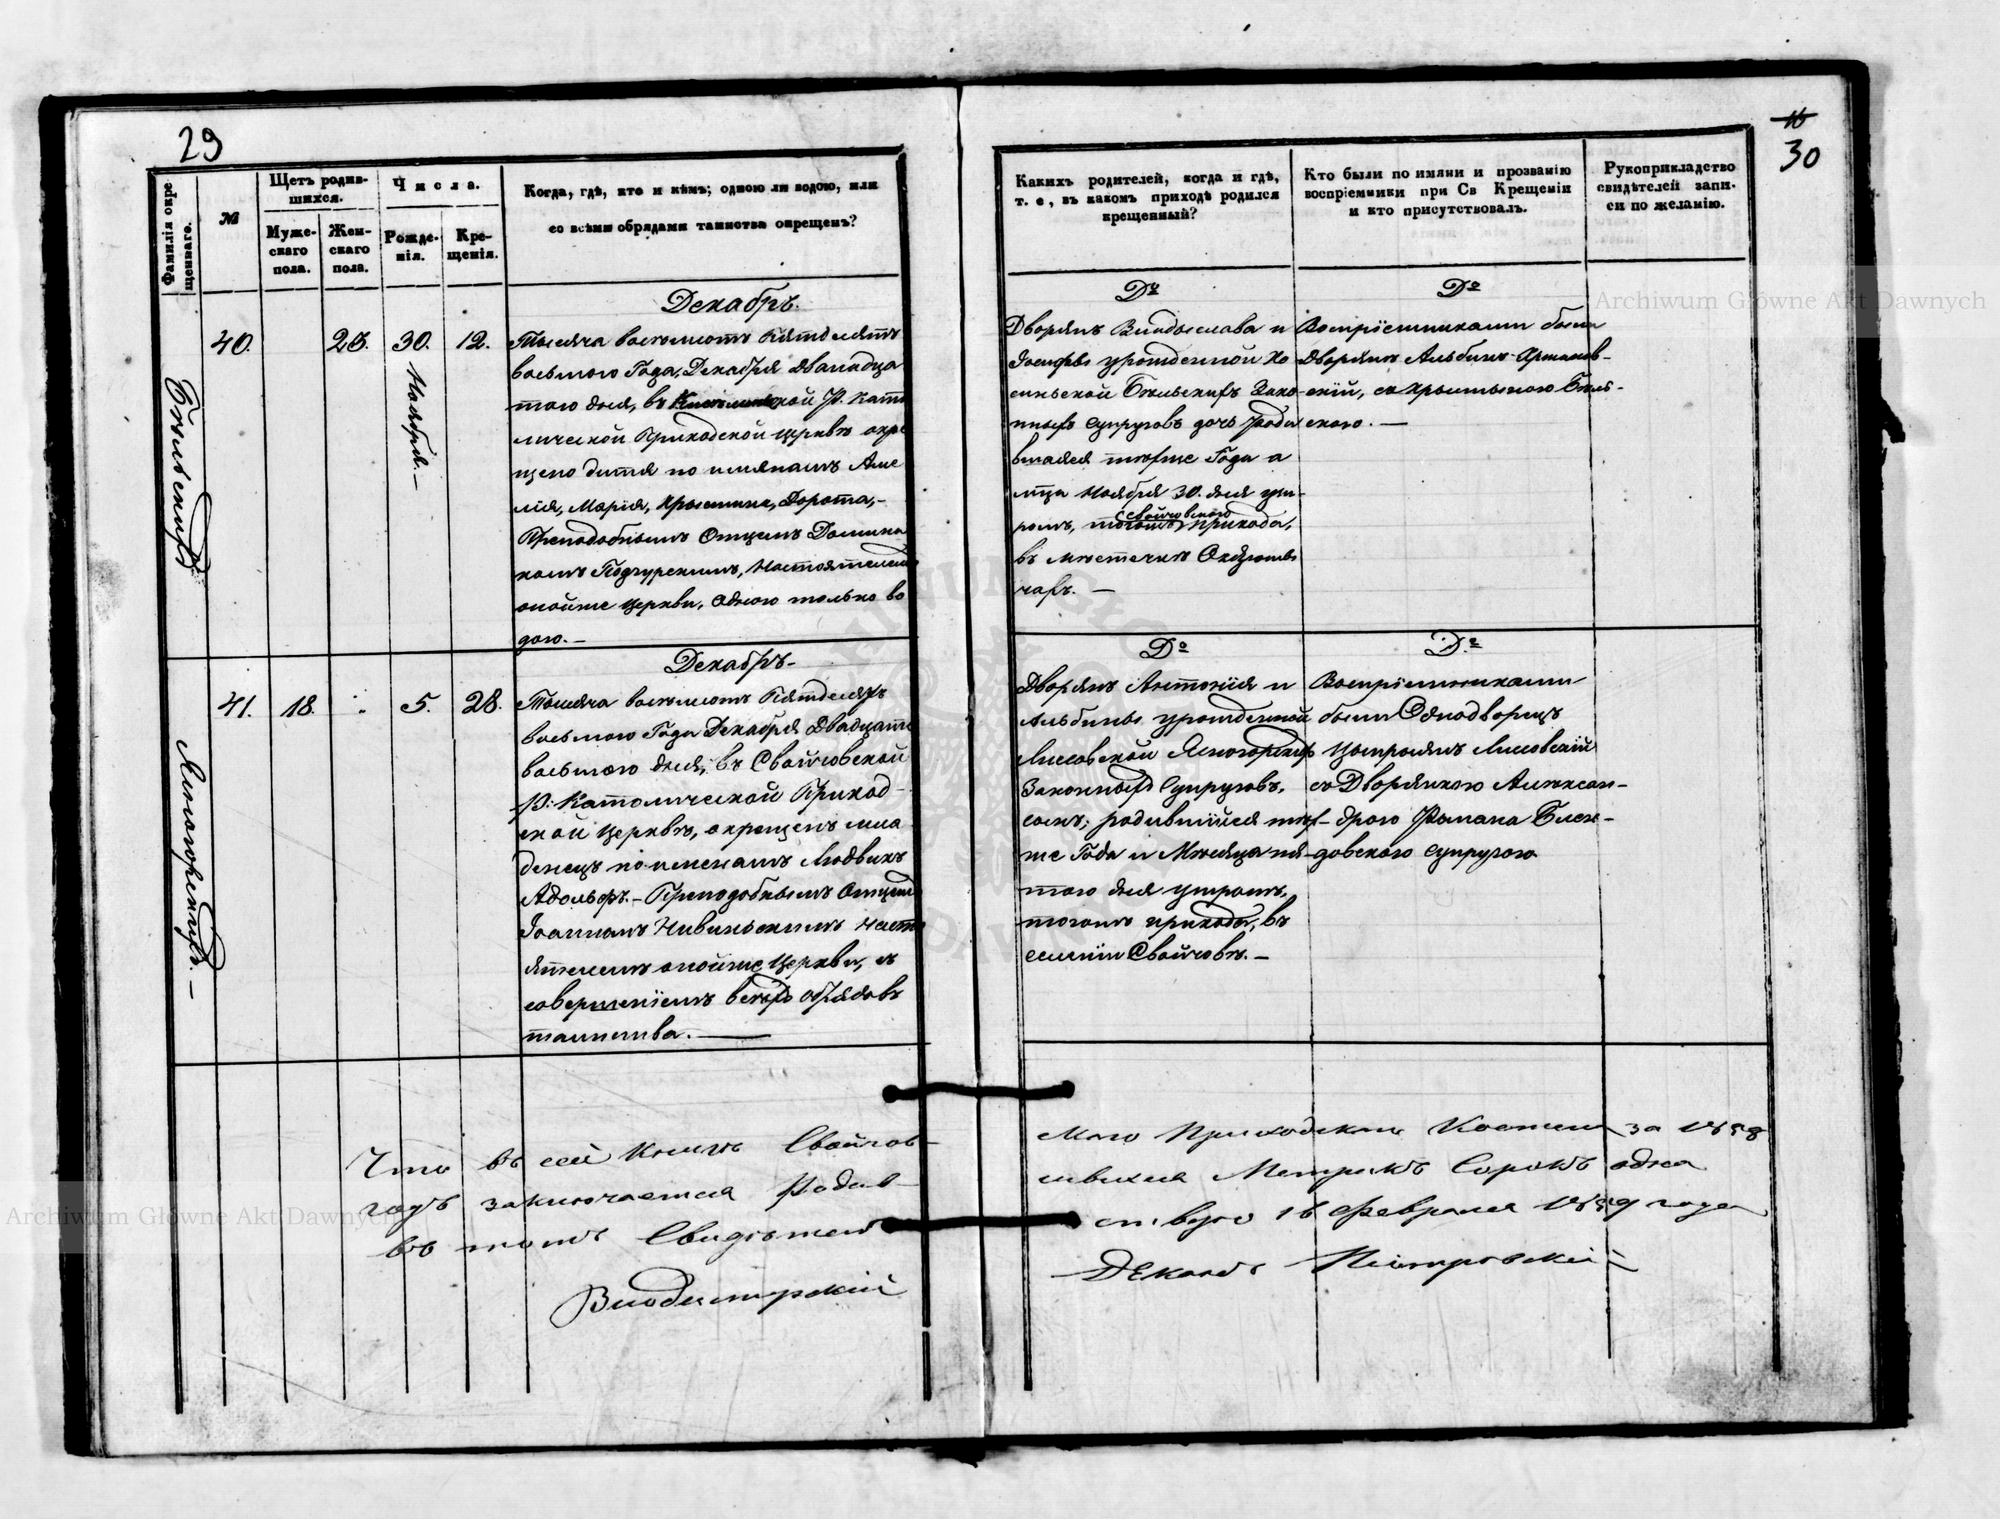 29
Фамилія окре
щеннаго.
№
Щетъ родив-
шихся.
Муже-
скаго
пола.
Жен-
скаго
пола.
Числа.
Рожде-
нія.
Кре-
щенія.
Когда, гдѣ, кто и кѣмъ; одною ли водою, или
со всѣми обрядами таинства окрещенъ?
Декабрь.
40.
23.
30.
Ноября.—
12.
Тысяча восемьсотъ Пятдесятъ
восьмого Года, Декабря двѣнадца
того дня, въ
Р. Като
лической Приходской церквѣ окре
щено дитя по имянамъ Аме
лія, Марія, Хрыстина, Дорота,-
Преподобнымъ Отцемъ Домини
комъ Подгурскимъ, Настоятелемъ
онойже церкви, одною только во
дою.—
Декабрь-
41.
18.
5.
28.
Тысяча восемьсотъ Пятдесятъ
восьмого Года Декабря Двадцать
восьмого дня, въ Свойчовской
Р. Католической Приход-
ской церквѣ, окрещенъ мла
денецъ по именамъ Людвикъ
Адольфъ.- Преподобнымъ Отцемъ
Іоанномъ Насто
ятелемъ онойже церкви, съ
совершеніемъ всѣхъ обрядовъ
таинства.—
Что въ сей Книгѣ Свойчов-
годъ заключается Родив-
въ томъ Свидѣтел
Владимірскій
16
30
Какихъ родителей, когда и гдѣ,
т. е, въ какомъ приходѣ родился
крещенный?
Кто были по имяни и прозванію
воспріемники при Св Крещеніи
и кто присутствовалъ.
Рукоприкладство
свидѣтелей запи-
си по желанію.
До
До
Дворянъ Владыслава и
Іосифы урожденной Хо
синьской Бѣльскихъ Зако
нныхъ супруговъ дочь роди
вшаяся тогоже Года а
мца Ноября 30. дня ут-
ромъ, тогожъ прихода,
свойчовского
въ мѣстечкѣ
чахъ.—
Воспріемниками были
Дворянъ Альбинъ
скій, со Хрыстыною Бѣль-
скою.—
До
До
Дворянъ Антонія и
Альбины урожденной
Лисовской Ясногорскихъ
Законныхъ Супруговъ.
сынъ; родившійся того-
же Года и Мѣсяца пя-
того дня утромъ.
тогожъ прихода, въ
селеніи Свойчовѣ.—
Воспріемниками
были Однодворецъ
Лисовскій
со Дворянкою Алексан-
дрою Романа
довского супругою
скаго Приходскаго Костела за 1858
шихся Метрикъ Сорокъ одна
ствую 18 Февраля 1859 года
Деканъ Піотровскій
Archiwum Główne Akt Dawnych
Archiwum Główne Akt Dawnych